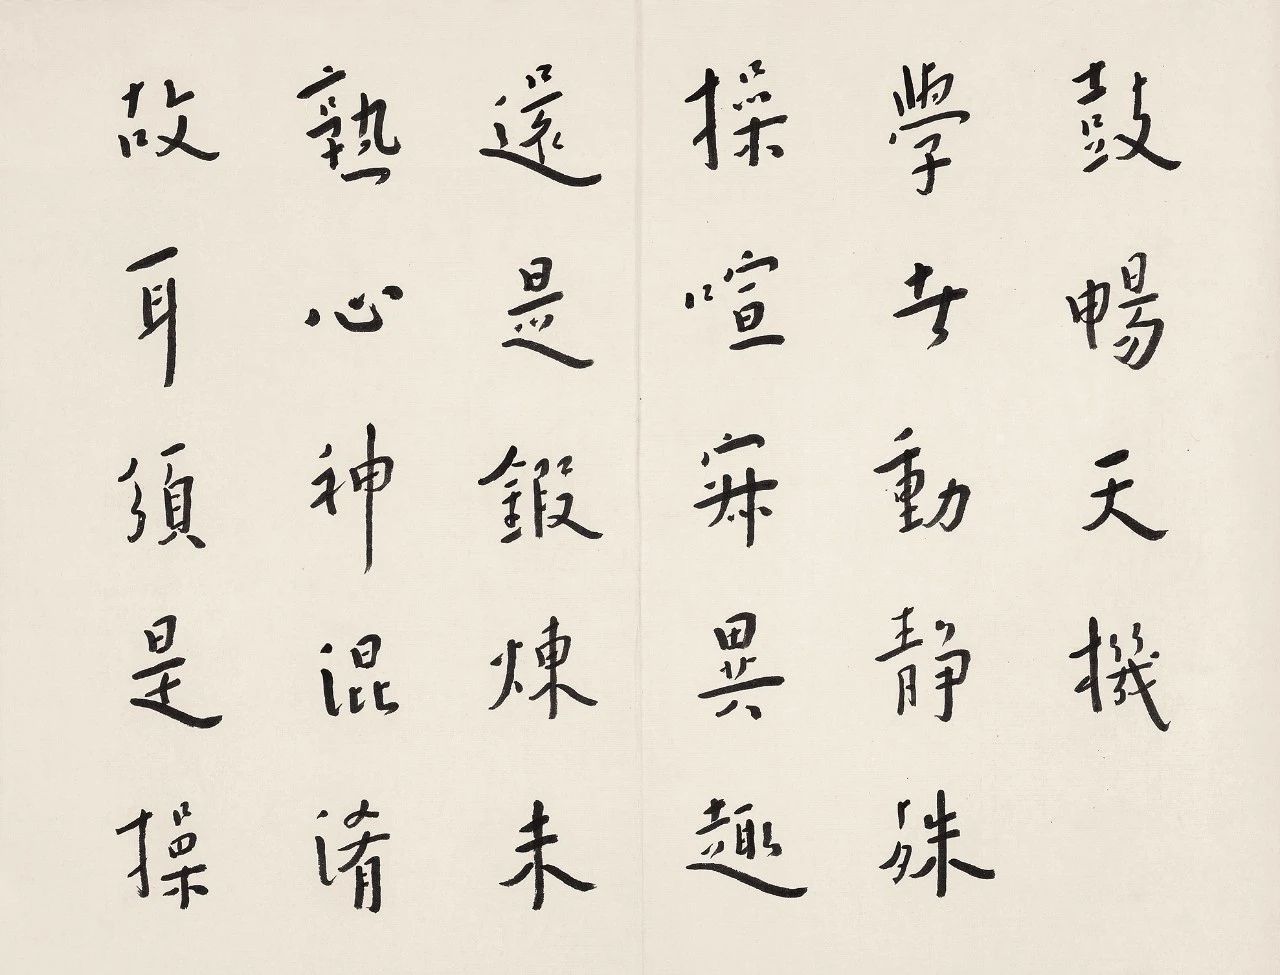 鼓暢天機
學者動静殊
操喧寂異趣
還是鍛煉未
熟心神混淆
故耳須是操